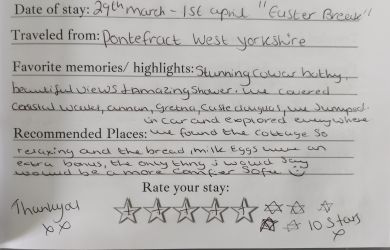 Date of stay: 29th march - 1st april "Easter Break"
Traveled from: Pontefract West Yorkshire
Favorite memories/ highlights: Stunning
beautiful views & Amazing Shower. We covered
Coastal walks, annan, Gretna, Castle douglas, we Jumped
in car and explored everywhere
Recommended Places: We found the cottage so
relaxing and the bread, milk Eggs were an
extra bonus, the only thing i would say
would be a more comfier Sofa
Rate your stay:
Thankyou
xx
10 Stars
x